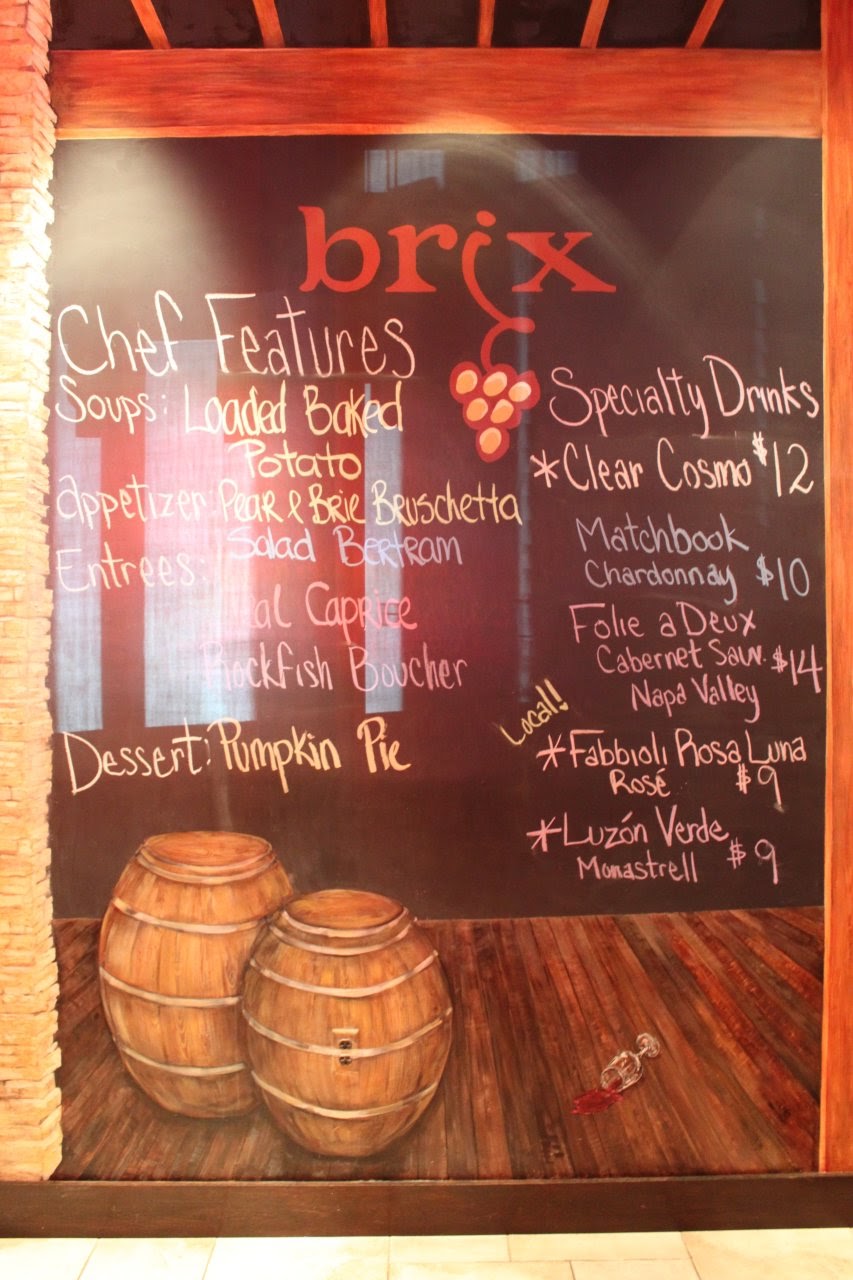 brix
Chef Features
Soups: Loaded Baked
Potato
Appetizer: Pear & Brie Bruschetta
Entrees: Salad Bertram
Veal Caprice
Rockfish Boucher
Dessert: Pumpkin Pie
Specialty Drinks
*Clear Cosmo $12
Matchbook
Chardonnay $10
Folie a Deux
Cabernet Sauv. $14
Napa Valley
Local!!
*Fabbioli Rosa Luna
Rosé $9
*Luzón Verde
Monastrell $9